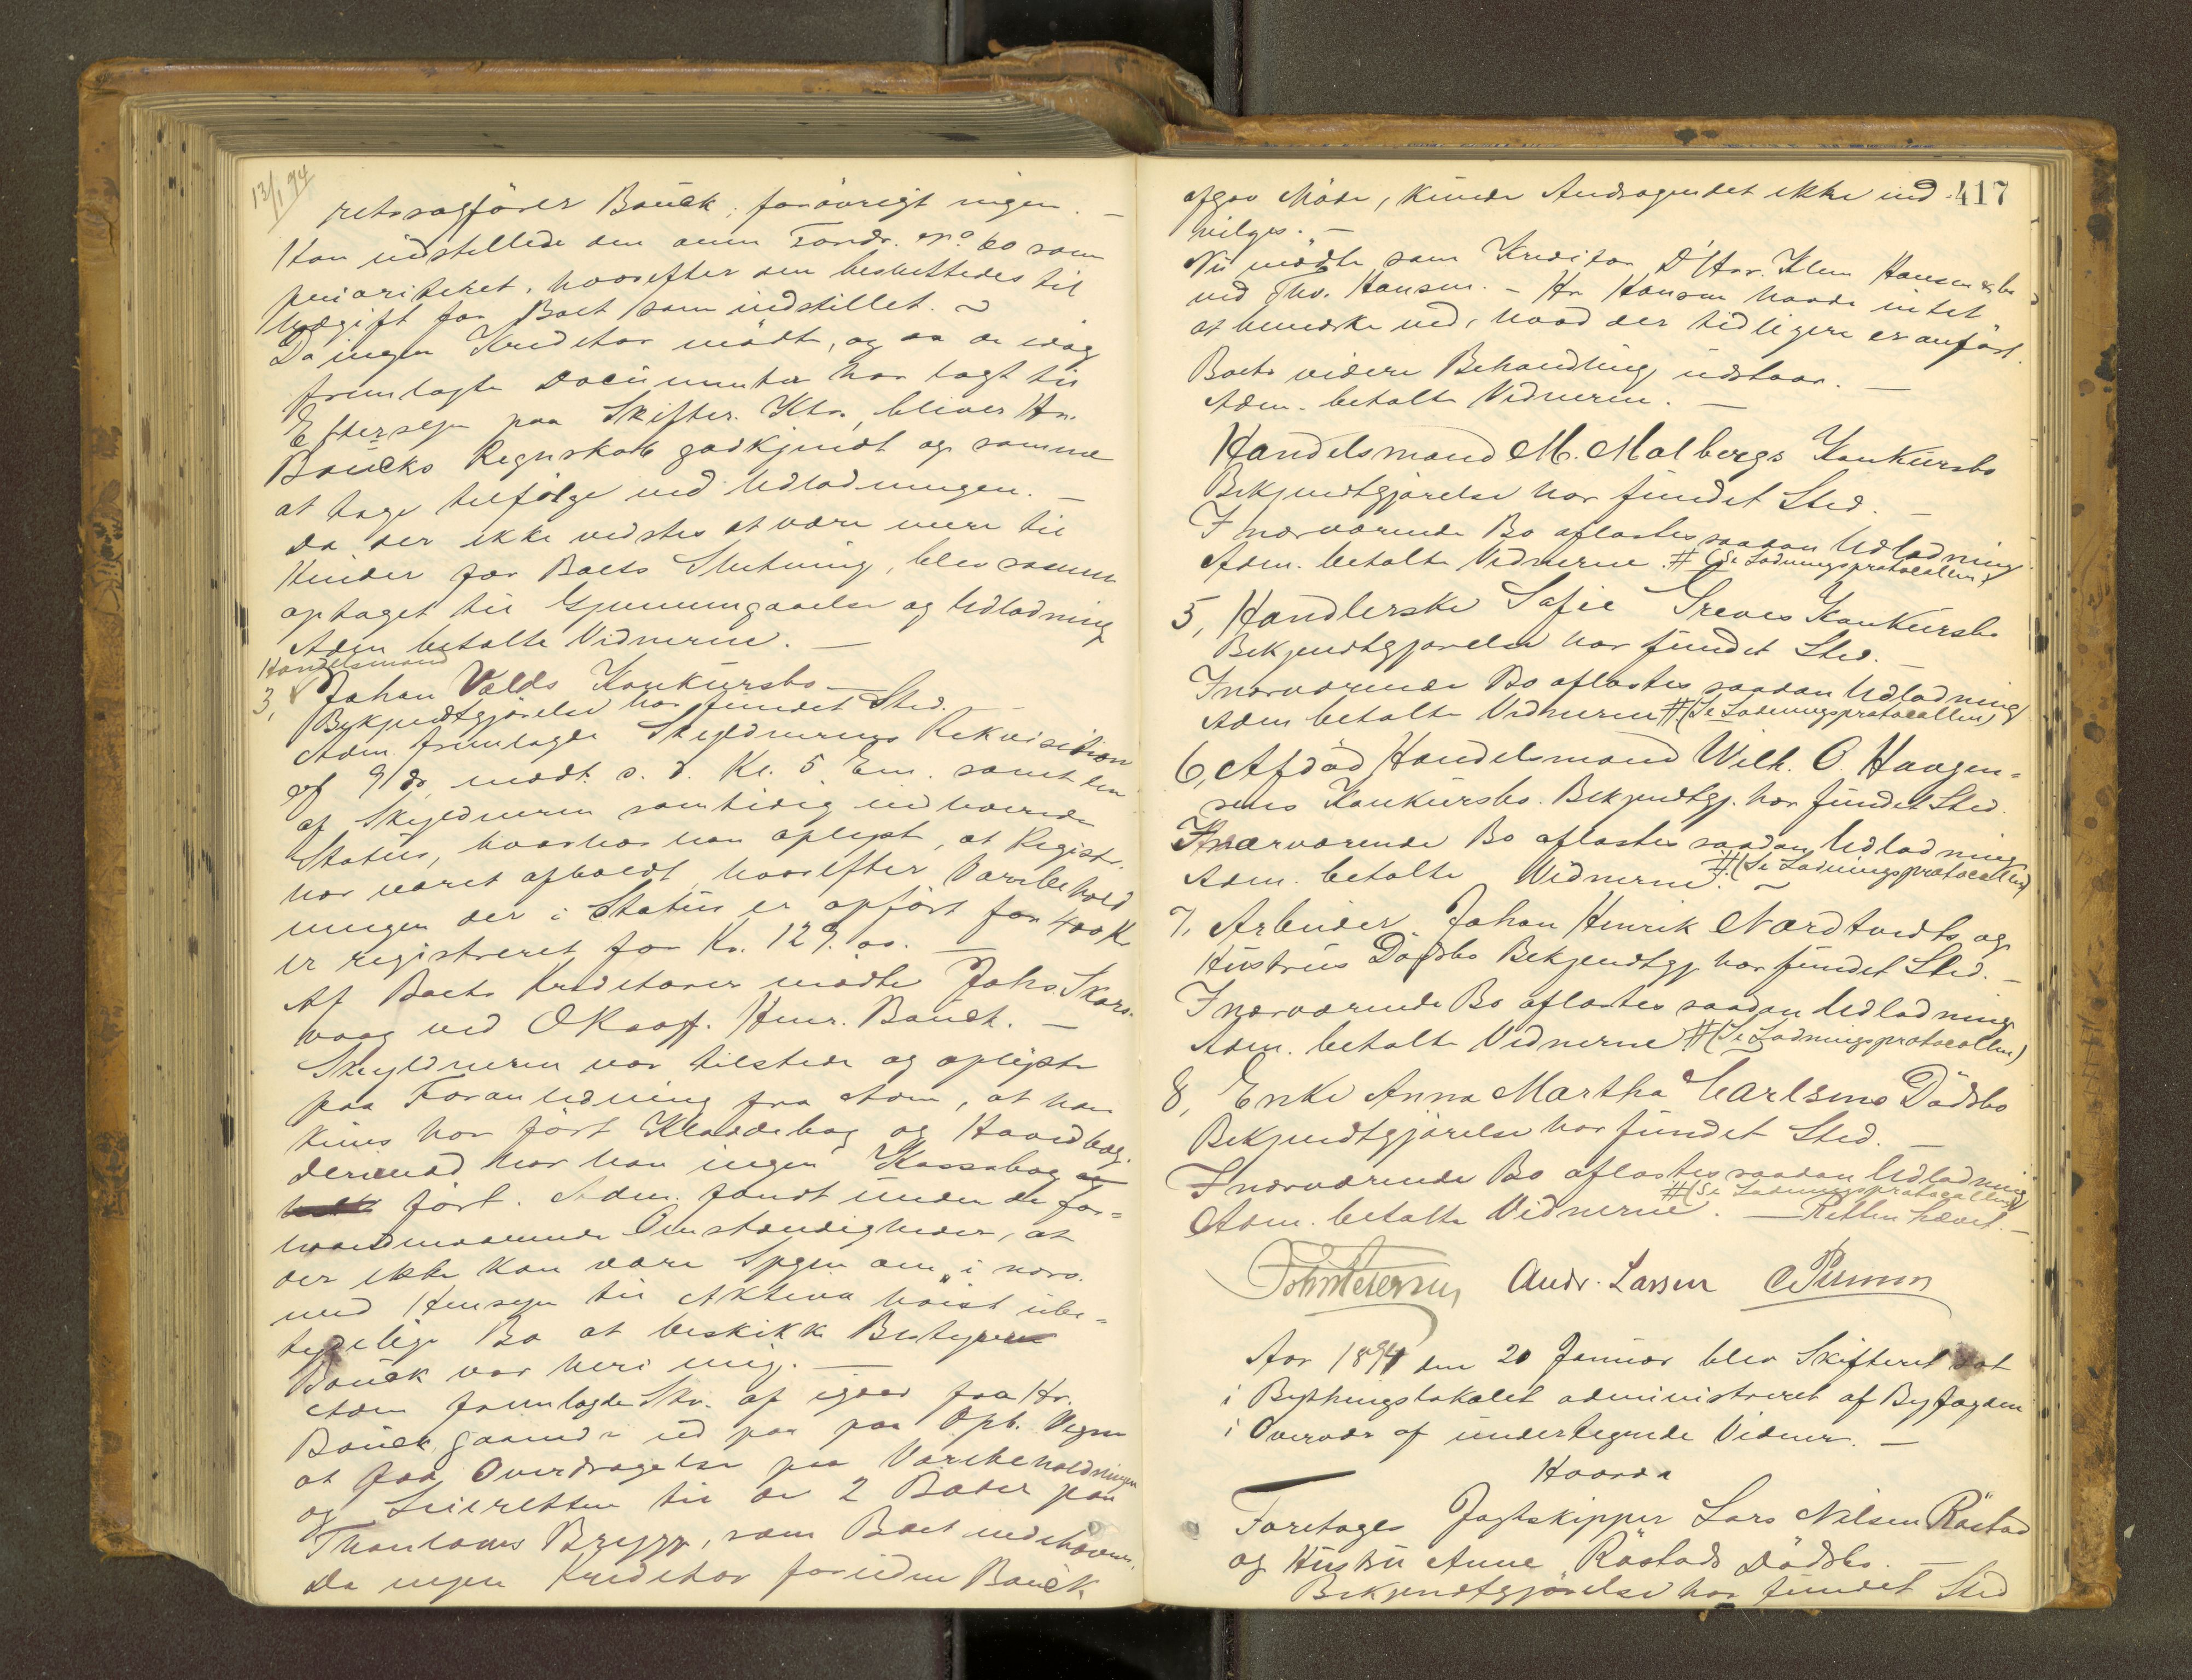 13/1 94
retssagförer Baück; forövrigt ingen. —
Han indstillede den anm. Fordr. No 60 som
prioriteret, hvorefter den besluttedes til
Udgift for Boet som indstillet. ~
Da ingen Kreditor mödte, og da de idag
fremlagte Documenter har lagt til
Eftersyn paa Skifter. Ktr., bliver Hr.
Baücks Regnskab godkjendt og samme
at tage tilfölge ved Udlodningen. —
Da der ikke vidstes at være mere til
Hinder for Boets Slutning, blev samme
optaget til Gjennemgaaelse og Udlodning
Adm. betalte Vidnerne. —
Handelsmand
3, Johan Valds Konkürsbo —
Bekjendtgjörelse har fundet Sted.
Adm. fremlagde Skyldnerens Rekvisition
af 9 ds, modt. s. d. Kl. 5 Em. samt den
af Skyldneren samtidig indleverede
Statüs, hvorhos han oplyste, at Registr.
har været afholdt, hvorefter Varebehold
ningen der i Statüs er opfört for 400 Kr
er registreret for Kr. 129.00. —
Af Boets Kreditorer mödte Johs. Skars-
vaag ved ORsagf. Henr. Baück. —
Skyldneren var tilstede og oplyste
paa Foranledning fra Adm, at han
küns har fört Kladdebog og Hovedbog,
derimod har han ingen Kassabog
fört. Adm. fandt ünder de for-
haandenværende Omstændigheder, at
der ikke kan være Spgm om, i nærv.
med Hensyn til Aktiva höist übe-
tydelige Bo at beskikke Bestyrer
Baück var heri enig. —
Adm fremlagde Skr. af igaar fra Hr.
Baück, gaaende üd paa paa Opb. Vegne
at faa Overdragelse paa Varebeholdningen
og Leieretten til de 2 Boder paa
Brygge, som Boet indehaver.
Da ingen Kreditor foruden Baück
417
afgav Möde, künde Andragendet ikke ind
vilges. —
Nü mödte som Kreditor D'Hrr. Klem Hansen & Co
ved Tho. Hansen. — Hr Hansen havde intet
at bemerke ved, hvad der tidligere er anfört.
Boets videre Behandling üdstaar. —
Adm. betalte Vidnerne. —
Handelsmand M. Malbergs Konkürsbo
Bekjendtgjörelse har fündet Sted. —
I nærværende Bo aflastes saadan Udlodning
Adm. betalte Vidnerne. # (Se Lodningsprotocollen)
5, Handlerske Sofie Greves Konkürsbo
Bekjendtgjörelse har fündet Sted. —
I nærværende Bo aflastes saadan Udlodning
Adm betalte Vidnerne # (Se Lodningsprotocollen)
6, Afdöd Handelsmand Wilh. O. Haagen-
sens Konkürsbo. Bekjendtgj. har fündet Sted.
I nærværende Bo aflastes saadan Udlodning
Adm. betalte Vidnerne. # (Se Lodningsprotocollen)
7, Arbeider Johan Henrik Nordtvedts og
Hüstrüs Dödsbo Bekjendtgj har fündet Sted. —
I nærværende Bo aflastes saadan Udlodning
Adm. betalte Vidnerne # (Se Lodningsprotocollen)
8, Enke Anna Martha Carlsens Dödsbo
Bekjendtgjörelse har fündet Sted. —
I nærværende Bo aflastes saadan Udlodning
# (Se Lodningsprotocollen)
Adm. betalte Vidnerne. — Retten hævet. —
Andr. Larsen
Aar 1894 den 20 Janüar blev Skifteret sat
i Bythingslokalet administreret af Byfogden
i Overvær af ündertegnede Vidner. —
Hvorda
Foretages Jagtskipper Lars Nilsen Råstad
og Hüstrü Anne Råstads Dödsbo. —
Bekjendtgjörelse har fündet Sted